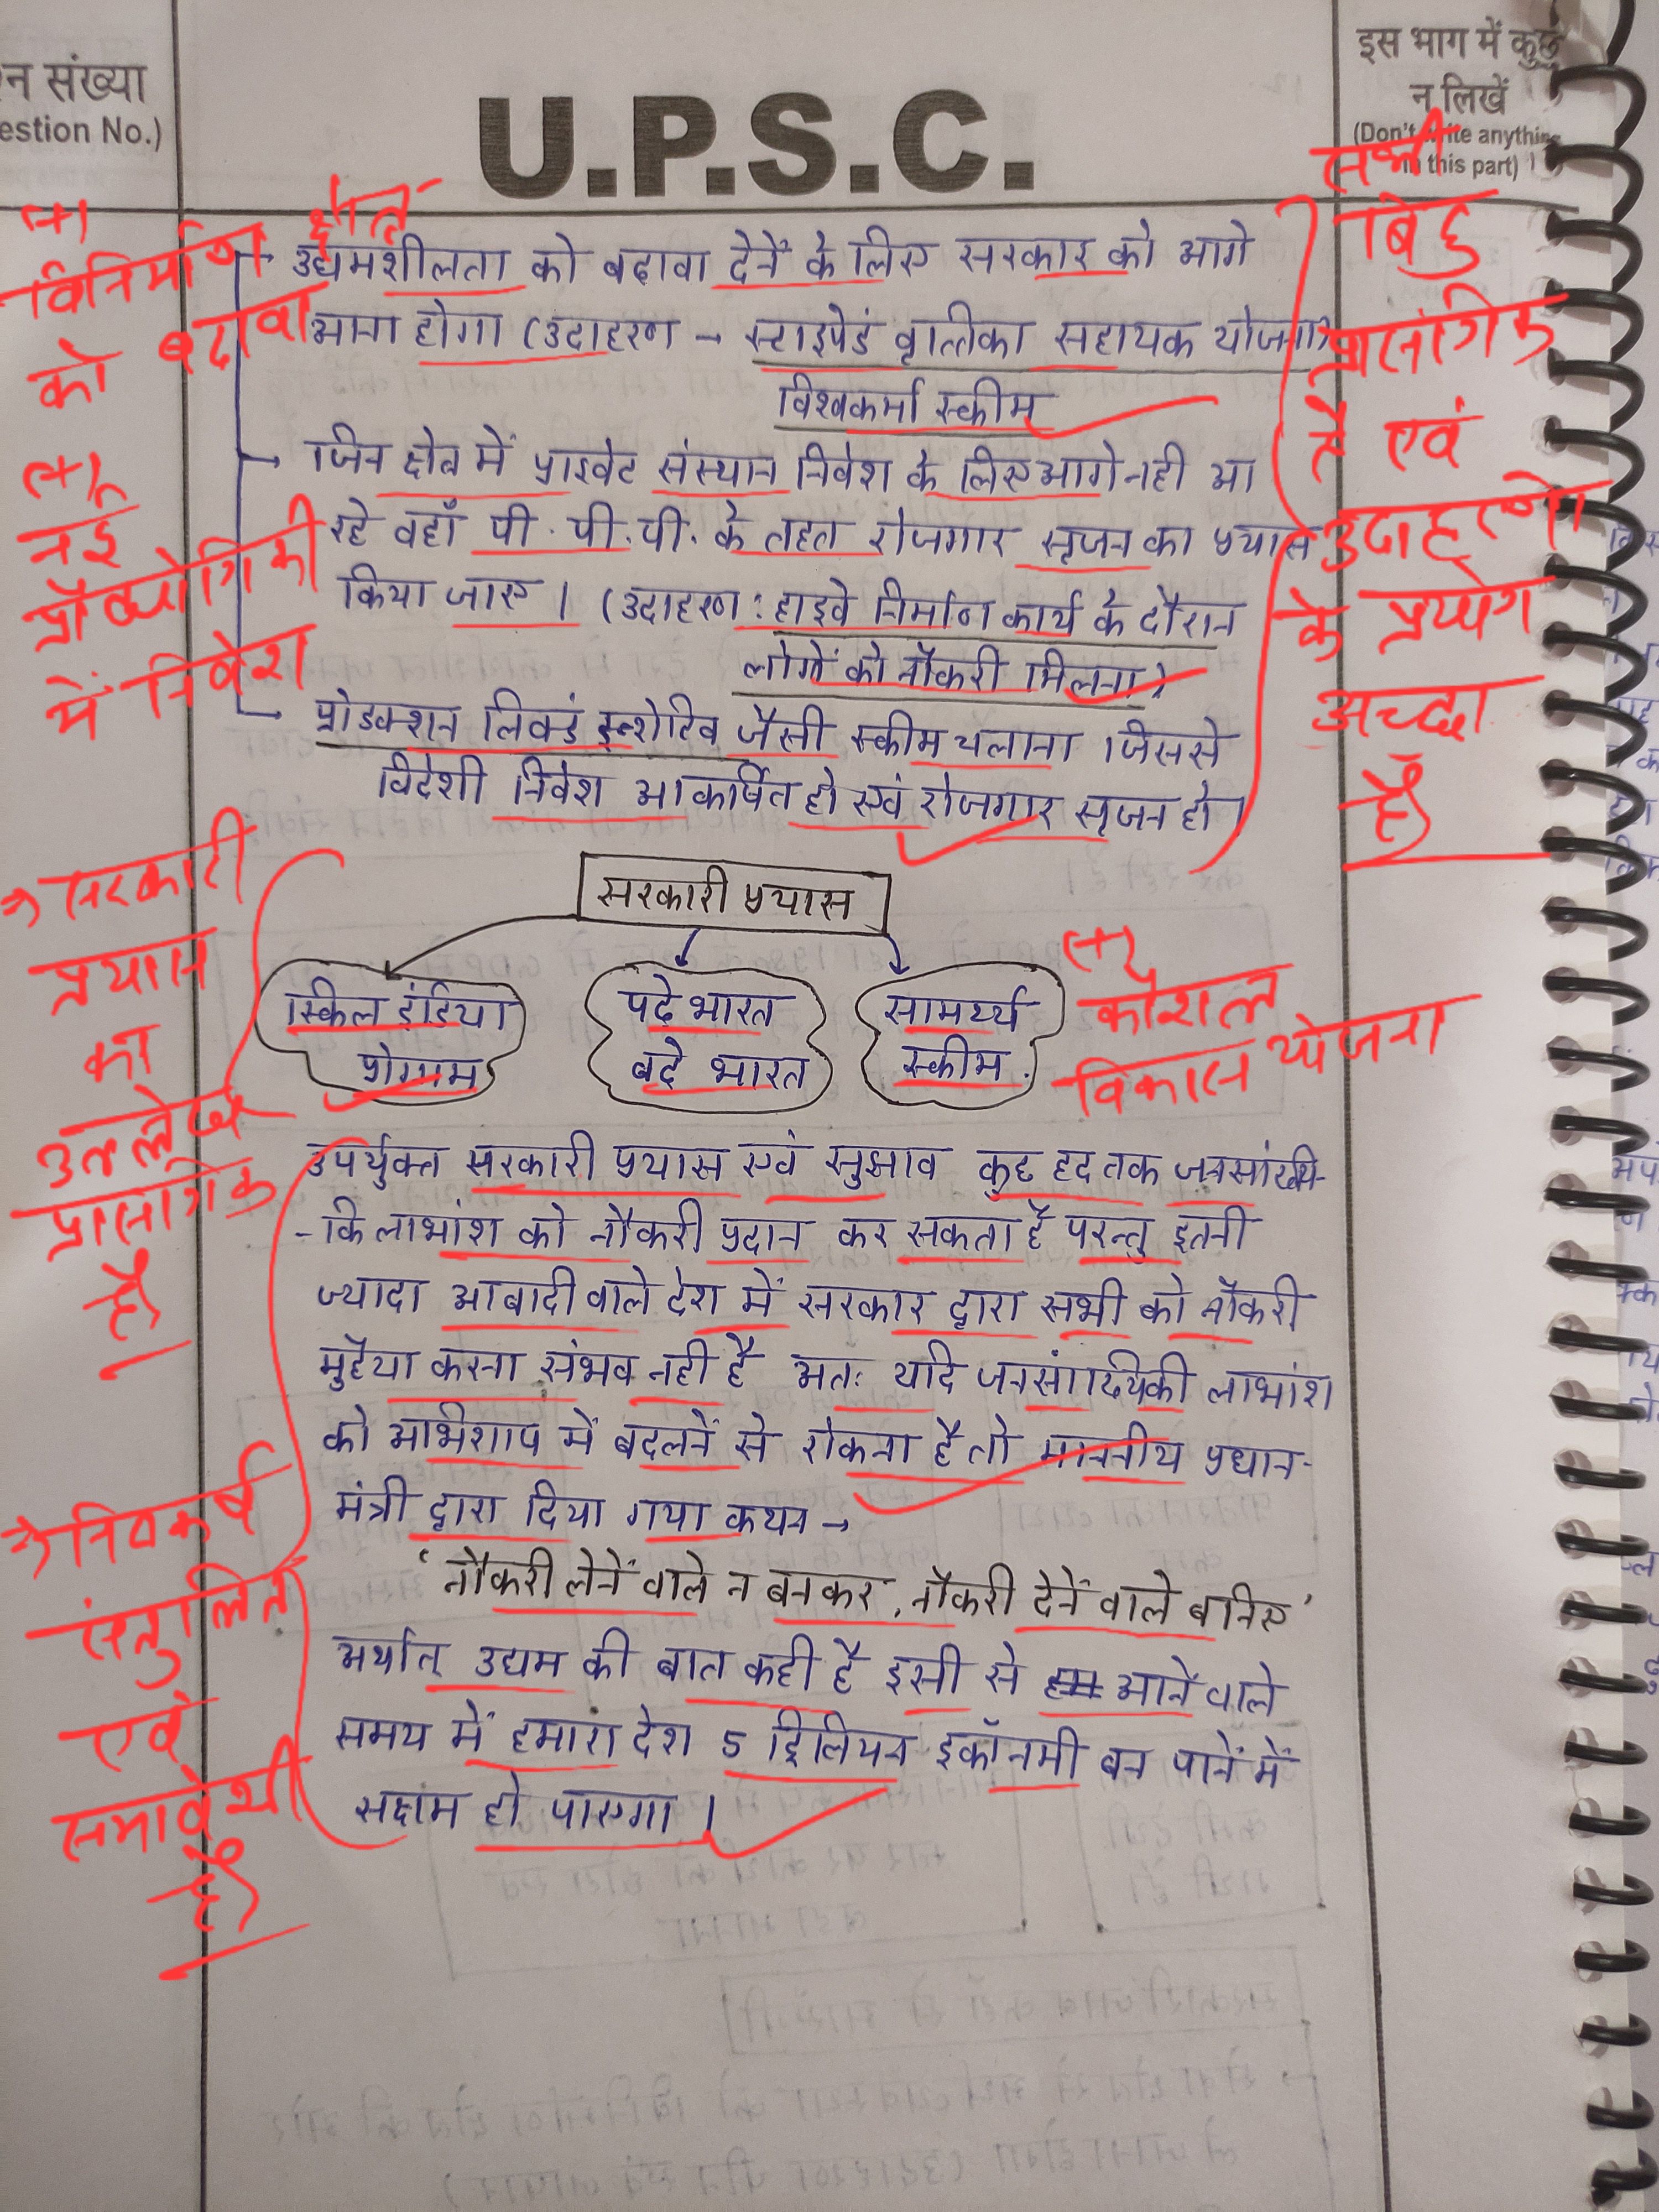 न संख्या
estion No.)
U.P.S.C.
इस भाग में कुछ
न लिखें
(Don't write anything
in this part)
(+)
विनिर्माण क्षेत्र
को बढावा
(+)
नई
प्रौद्योगिकी
में निवेश
उद्यमशीलता को बढावा देनें के लिए सरकार को आगे
आना होगा (उदाहरण → स्टाइपेडं वृात्तिका सहायक योजना,
विश्वकर्मा स्कीम
जिन क्षेत्र में प्राइवेट संस्थान निवेश के लिए आगे नही आ
रहे वहाँ पी.पी.पी. के तहत रोजगार सृजन का प्रयास
किया जाए। (उदाहरण: हाइवे निर्माण कार्य के दौरान
लोगों को नौकरी मिलना)
प्रोडक्शन लिक्डं इन्शेटिव जैसी स्कीम चलाना जिससे
विदेशी निवेश आकर्षित हो एवं रोजगार सृजन हो।
सभी
बिंदु
प्रासंगिक
है एवं
उदाहरणो
के प्रयोग
अच्छा
है
→ सरकारी
प्रयास
का
उल्लेख
प्रासंगिक
है
सरकारी प्रयास
स्किल इंडिया
प्रोग्राम
पढे भारत
बढे भारत
सामर्थ्य
स्कीम.
(+)
कौशल
विकास योजना
उपर्युक्त सरकारी प्रयास एवं सुझाव कुछ हद तक जनसांख्यि-
-कि लाभांश को नौकरी प्रदान कर सकता है परन्तु इतनी
ज्यादा आबादी वाले देश में सरकार द्वारा सभी को नौकरी
मुहैया करना संभव नही है अतः यदि लाभांश
को अभिशाप में बदलनें से रोकना है तो माननीय प्रधान-
मंत्री द्वारा दिया गया कथन →
'नौकरी लेनें वाले न बनकर, नौकरी देनें वाले बनिए'
अर्थात् उद्यम की बात कही है इसी से आने वाले
समय में हमारा देश 5 ट्रिलियन इकॉनमी बन पानें में
सक्षम हो पाएगा।
→ निष्कर्ष
संतुलित
एवं
समावेशी
है